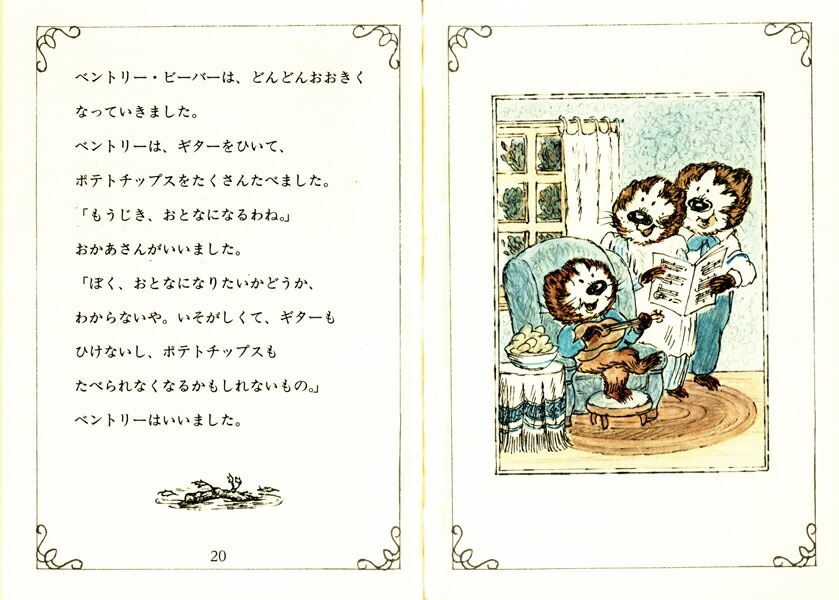 ベントリー・ビーバーは、どんどんおおきく
なっていきました。
ベントリーは、ギターをひいて、
ポテトチップスをたくさんたべました。
「もうじき、おとなになるわね。」
おかあさんがいいました。
「ぼく、おとなになりたいかどうか、
わからないや。いそがしくて、ギターも
ひけないし、ポテトチップスも
たべられなくなるかもしれないもの。」
ベントリーはいいました。
20